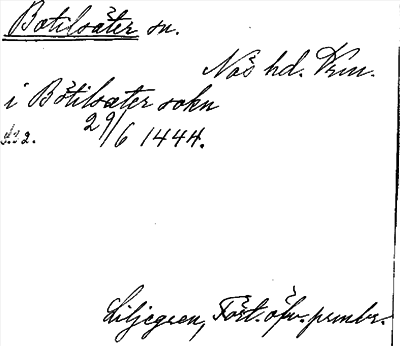 Botilsäter sn.
Näs hd. Vrm.
i Bötilsæter sokn
29/6 1444.
s. 2.
Liljegren, Fört. öfv. prmbr.